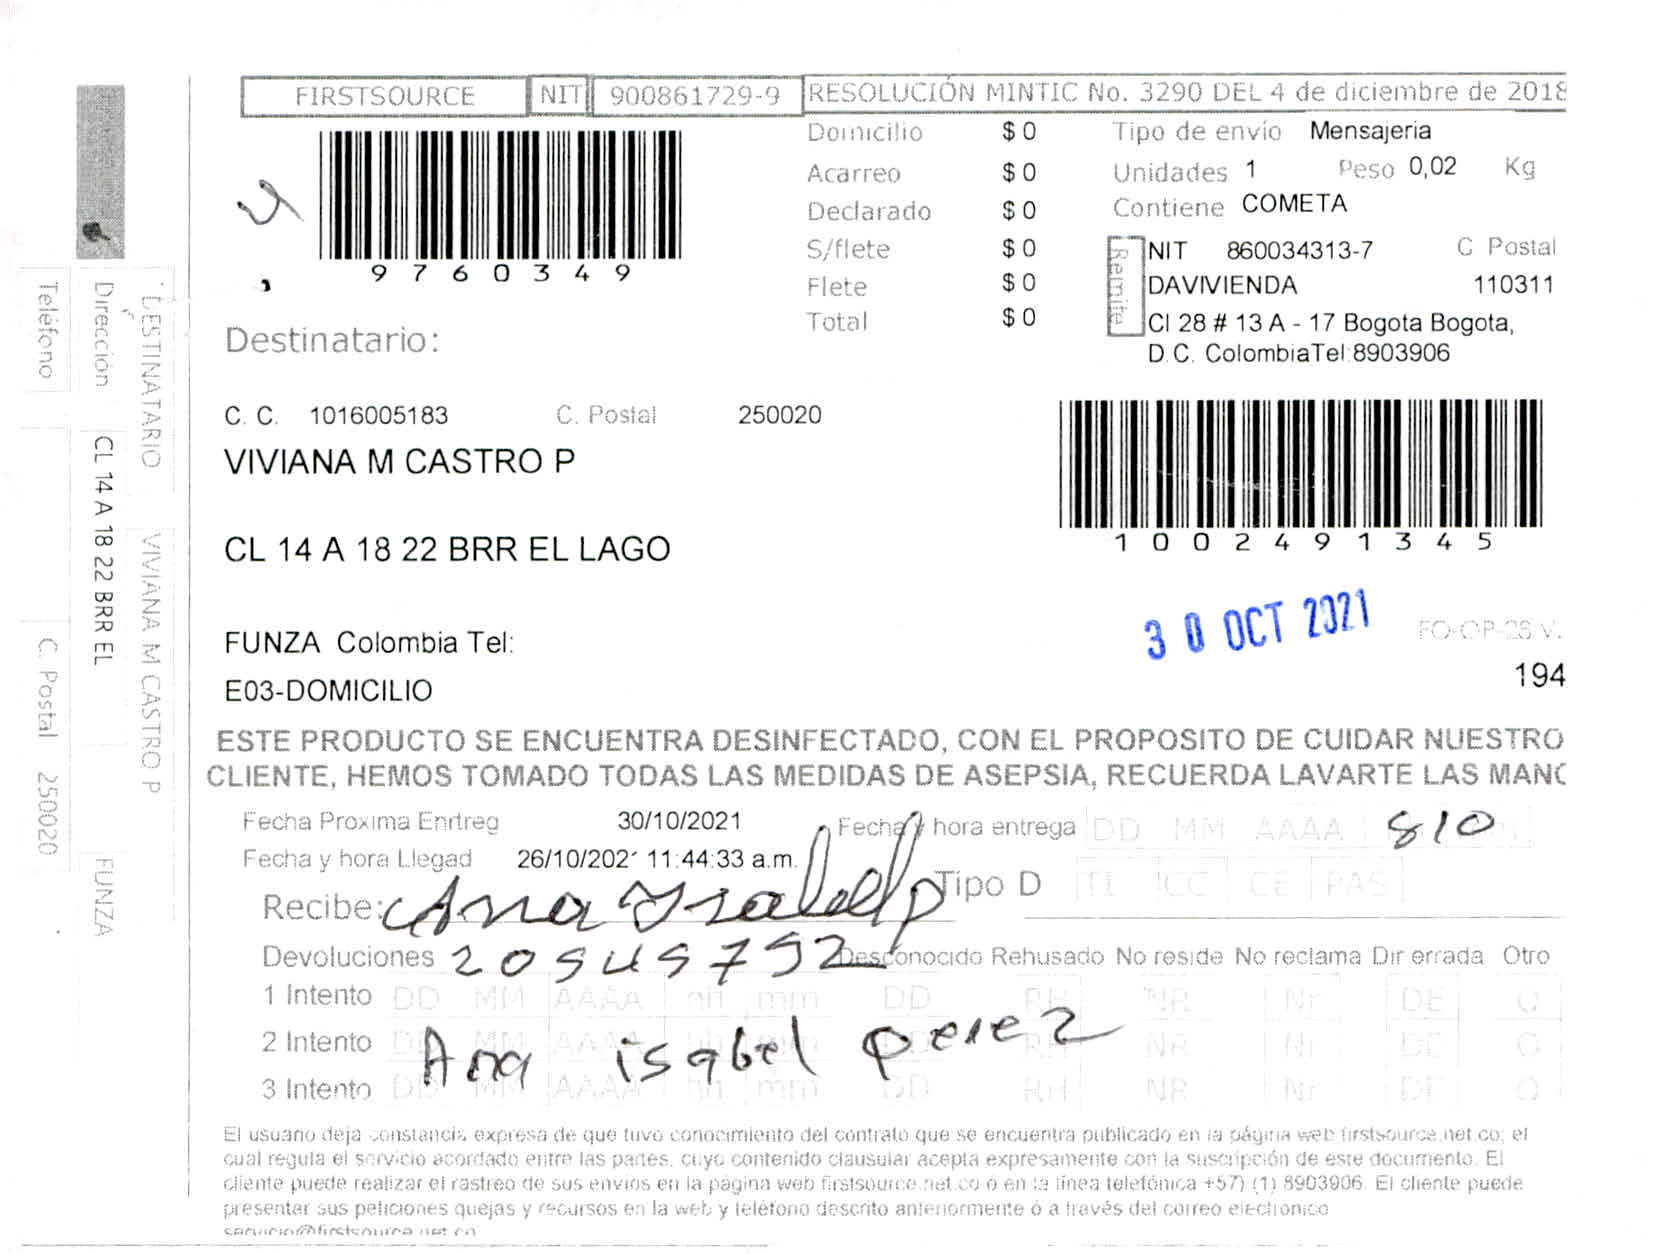 FIRSTSOURCE NIT 900861729-9 RESOLUCIÓN MINTIC No. 3290 DEL 4 de diciembre de 2018
9760349
Domicilio $ 0
Acarreo $ 0
Declarado $ 0
S/flete $ 0
Flete $ 0
Total $ 0
Tipo de envío Mensajeria
Unidades 1 Peso 0,02 Kg
Contiene COMETA
Remite
NIT 860034313-7 C Postal
DAVIVIENDA 110311
Cl 28 # 13 A - 17 Bogota Bogota,
D.C. ColombiaTel:8903906
Destinatario:
C. C. 1016005183 C. Postal 250020
VIVIANA M CASTRO P
CL 14 A 18 22 BRR EL LAGO
1002491345
30 OCT 2021
FUNZA Colombia Tel:
FO-OP-26 V.
194
E03-DOMICILIO
ESTE PRODUCTO SE ENCUENTRA DESINFECTADO, CON EL PROPOSITO DE CUIDAR NUESTRO
CLIENTE, HEMOS TOMADO TODAS LAS MEDIDAS DE ASEPSIA, RECUERDA LAVARTE LAS MANO
Fecha Proxima Enrtreg 30/10/2021 Fecha y hora entrega DD MM AAAA 810
Fecha y hora Llegad 26/10/2021 11:44:33 a.m.
Recibe: Ana Isabel p Tipo D TI CC CE PAS
Devoluciones 20545792 Desconocido Rehusado No reside No reclama Dir errada Otro
1 Intento DD MM AAAA hh mm DD RH NR Nr DE O
2 Intento DD MM AAAA hh mm DD RH NR Nr DE O
Ana isabel perez
3 Intento DD MM AAAA hh mm DD RH NR Nr DE O
El usuario deja constancia expresa de que tuvo conocimiento del contrato que se encuentra publicado en la página web firstsource.net.co; el
cual regula el servicio acordado entre las partes, cuyo contenido clausular acepta expresamente con la suscripción de este documento. El
cliente puede realizar el rastreo de sus envios en la página web firstsource.net.co ó en la línea telefónica +57) (1) 8903906. El cliente puede
presentar sus peticiones quejas y recursos en la web y teléfono descrito anteriormente ó a través del correo electronico
servicio@firstsource.net.co
DESTINATARIO VIVIANA M CASTRO P
Dirección CL 14 A 18 22 BRR EL FUNZA
Teléfono C. Postal 250020